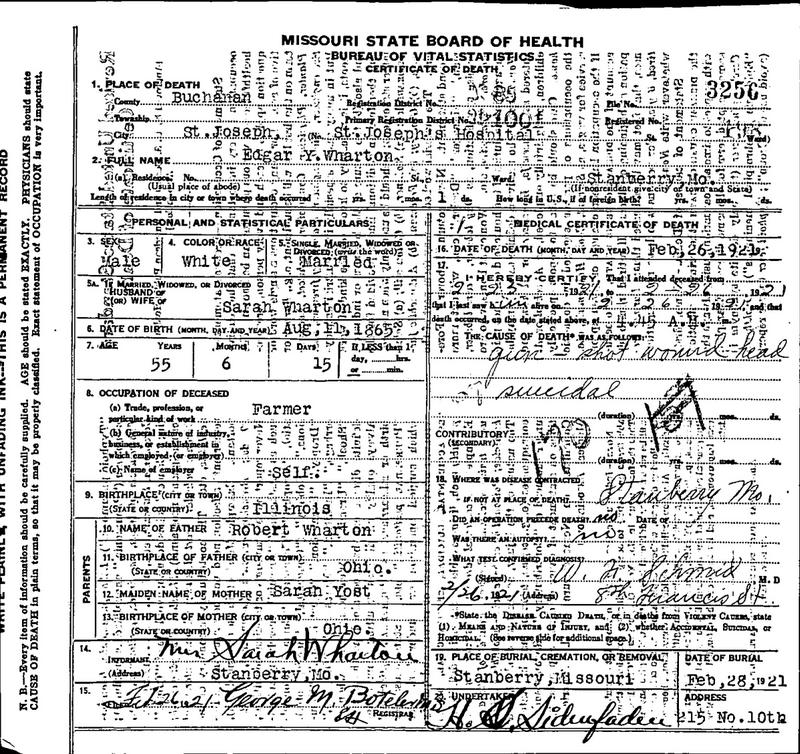 MISSOURI STATE BOARD OF HEALTH
BUREAU OF VITAL STATISTICS
CERTIFICATE OF DEATH
1. PLACE OF DEATH
County Buchanan Registration District No. 85 File No. 3256
Township Primary Registration District No. 1001 Registered No.
City St. Joseph. (No. St. Joseph's Hospital St. Ward)
2. FULL NAME Edgar Y. Wharton
(a) Residence. No. St. Ward. Stanberry, Mo.
(Usual place of abode) (If nonresident give city or town and State)
Length of residence in city or town where death occurred yrs. mos. 1 ds. How long in U.S., if of foreign birth? yrs. mos. ds.
PERSONAL AND STATISTICAL PARTICULARS
3. SEX 4. COLOR OR RACE 5. SINGLE, MARRIED, WIDOWED OR DIVORCED (write the word)
Male White Married
5A. IF MARRIED, WIDOWED, OR DIVORCED
HUSBAND OF
(OR) WIFE OF Sarah Wharton
6. DATE OF BIRTH (MONTH, DAY AND YEAR) Aug, 11, 1865
7. AGE YEARS MONTHS DAYS If LESS than 1 day, hrs. or min.
55 6 15
8. OCCUPATION OF DECEASED
(a) Trade, profession, or
particular kind of work Farmer
(b) General nature of industry,
business, or establishment in
which employed (or employer)
(c) Name of employer Self.
9. BIRTHPLACE (CITY OR TOWN)
(STATE OR COUNTRY) Illinois
PARENTS
10. NAME OF FATHER Robert Wharton
11. BIRTHPLACE OF FATHER (CITY OR TOWN)
(STATE OR COUNTRY) Ohio.
12. MAIDEN NAME OF MOTHER Sarah Yost
13. BIRTHPLACE OF MOTHER (CITY OR TOWN)
(STATE OR COUNTRY) Ohio.
14. INFORMANT Mrs Sarah Wharton
(Address) Stanberry, Mo.
15. FILED Feb 26 21 George M. Boteler
REGISTRAR
MEDICAL CERTIFICATE OF DEATH
16. DATE OF DEATH (MONTH, DAY AND YEAR) Feb, 26, 1921
I HEREBY CERTIFY, That I attended deceased from
1921, to 1921
that I last saw him alive on 2 26 1921, and that
death occurred, on the date stated above, at 45 A. m.
THE CAUSE OF DEATH* WAS AS FOLLOWS:
gun-shot wound head
suicidal
(duration) yrs. mos. ds.
CONTRIBUTORY
(SECONDARY)
(duration) yrs. mos. ds.
18. WHERE WAS DISEASE CONTRACTED
IF NOT AT PLACE OF DEATH? Stanberry Mo.
DID AN OPERATION PRECEDE DEATH? no DATE OF
WAS THERE AN AUTOPSY? no
WHAT TEST CONFIRMED DIAGNOSIS?
(Signed) W. F. Schmid M. D
2/26 1921 (Address) 8th Francis St.
*State the DISEASE CAUSING DEATH, or in deaths from VIOLENT CAUSES, state
(1) MEANS AND NATURE OF INJURY, and (2) whether ACCIDENTAL, SUICIDAL, or
HOMICIDAL. (See reverse side for additional space.)
19. PLACE OF BURIAL, CREMATION, OR REMOVAL DATE OF BURIAL
Stanberry, Missouri Feb, 28, 1921
20. UNDERTAKER ADDRESS
H. O. Sidenfaden 215 No. 10th
N. B.—Every item of information should be carefully supplied. AGE should be stated EXACTLY. PHYSICIANS should state
CAUSE OF DEATH in plain terms, so that it may be properly classified. Exact statement of OCCUPATION is very important.
WRITE PLAINLY, WITH UNFADING INK—THIS IS A PERMANENT RECORD